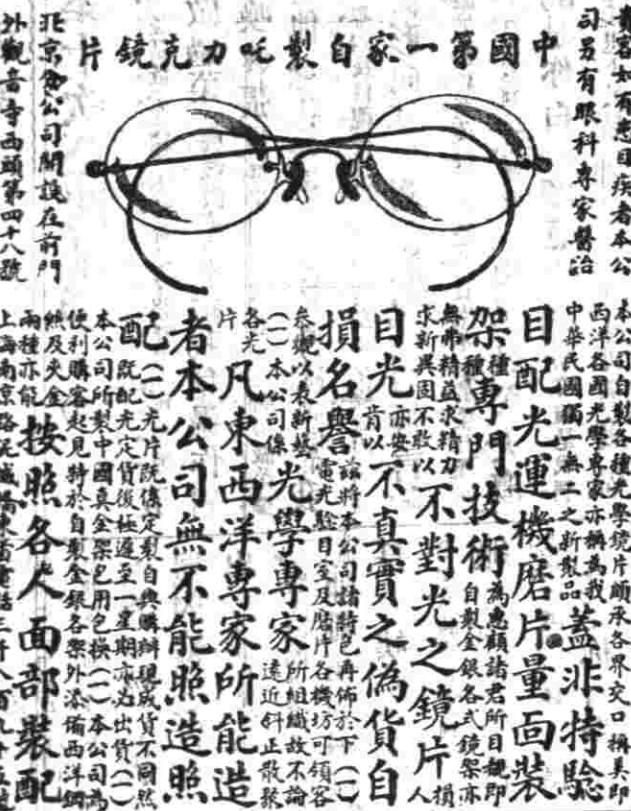 中國第一家自製吒力克鏡片
貴客如有患目疾者本公
司另有眼科專家醫治
北京分公司開設在前門
外觀音寺西頭第四十八號
本公司自製各種光學鏡片頗承各界交口稱美即
西洋各國光學專家亦稱為我
中華民國獨一無二之新製品
蓋非特驗
目配光運機磨片量面裝
架
種種
專門技術
為惠顧諸君所目覩即
自製金銀各式鏡架亦
無弗精益求精力
求新異固不敢以
不對光之鏡片
損人
目光
亦安
肯以
不真實之偽貨自
損名譽
茲將本公司諸特色再佈於下(一)
電光驗目室及磨片各機坊可領客
參觀以表新藝
(一)本公司係
光學專家
所組織故不論
遠近斜正散聚
各光
片
凡東西洋專家所能造
者本公司無不能照造照
配
(一)光片既係定製自與購辦現成貨不同然
既配光定貨後極遲至一星期亦必出貨(一)
本公司所製中國真金架包用包換(一)本公司為
便利購客起見特於自製金銀各架外添備西洋鋼
絲及夾金
兩種亦能
按照各人面部裝配
上海南京路泥城橋東首電話三千八百九十五